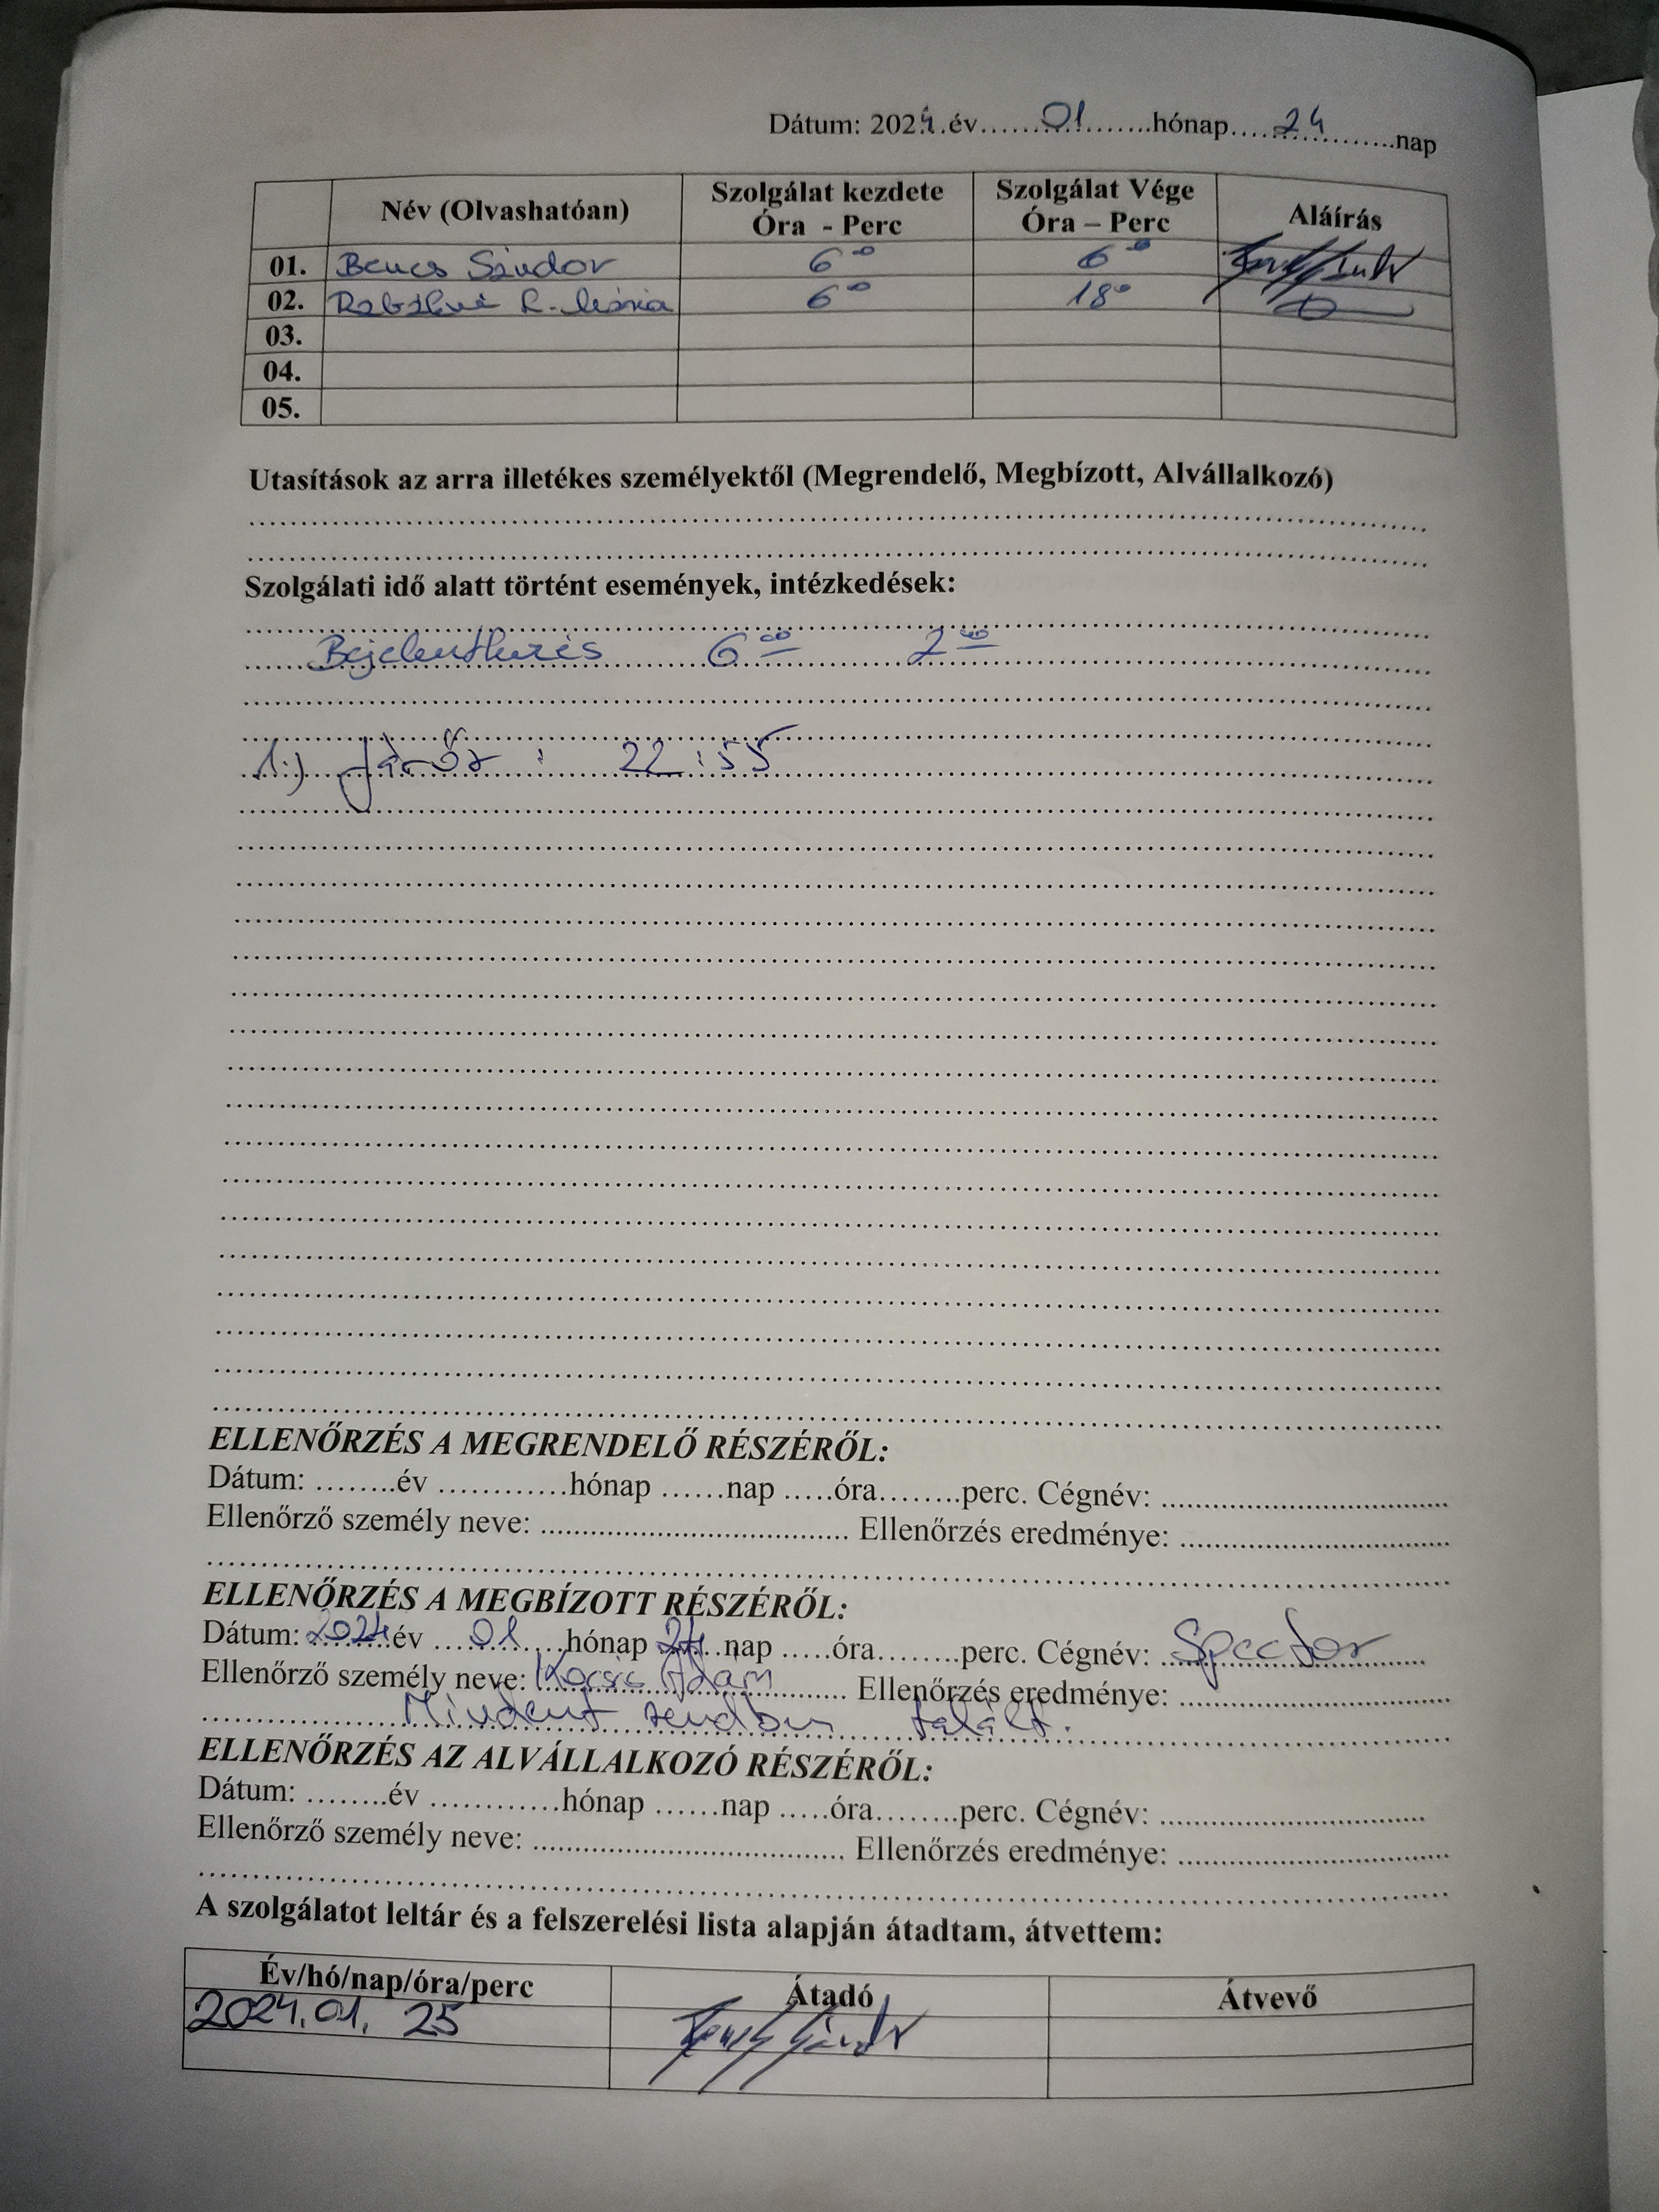 Dátum: 2024.év......01.......hónap....24.......nap
Név (Olvashatóan) Szolgálat kezdete Óra - Perc Szolgálat Vége Óra – Perc Aláírás
01. Bencs Sándor 6 00 6 00
02. Mária 6 00 18 00
03.
04.
05.
Utasítások az arra illetékes személyektől (Megrendelő, Megbízott, Alvállalkozó)
Szolgálati idő alatt történt események, intézkedések:
Bejelentkezés 6 00 2 00
1.) Járőr : 22 : 55
ELLENŐRZÉS A MEGRENDELŐ RÉSZÉRŐL:
Dátum: ........év ............hónap ......nap .....óra........perc. Cégnév: ..................................
Ellenőrző személy neve: ..................................... Ellenőrzés eredménye: ................................
ELLENŐRZÉS A MEGBÍZOTT RÉSZÉRŐL:
Dátum: 2024 év ....01....hónap 24 nap .....óra........perc. Cégnév: Spector
Ellenőrző személy neve: Kocsis Ádám Ellenőrzés eredménye: ................................
Mindent rendben talált.
ELLENŐRZÉS AZ ALVÁLLALKOZÓ RÉSZÉRŐL:
Dátum: ........év ............hónap ......nap .....óra........perc. Cégnév: ................................
Ellenőrző személy neve: ...................................... Ellenőrzés eredménye: ................................
A szolgálatot leltár és a felszerelési lista alapján átadtam, átvettem:
Év/hó/nap/óra/perc Átadó Átvevő
2024.01. 25